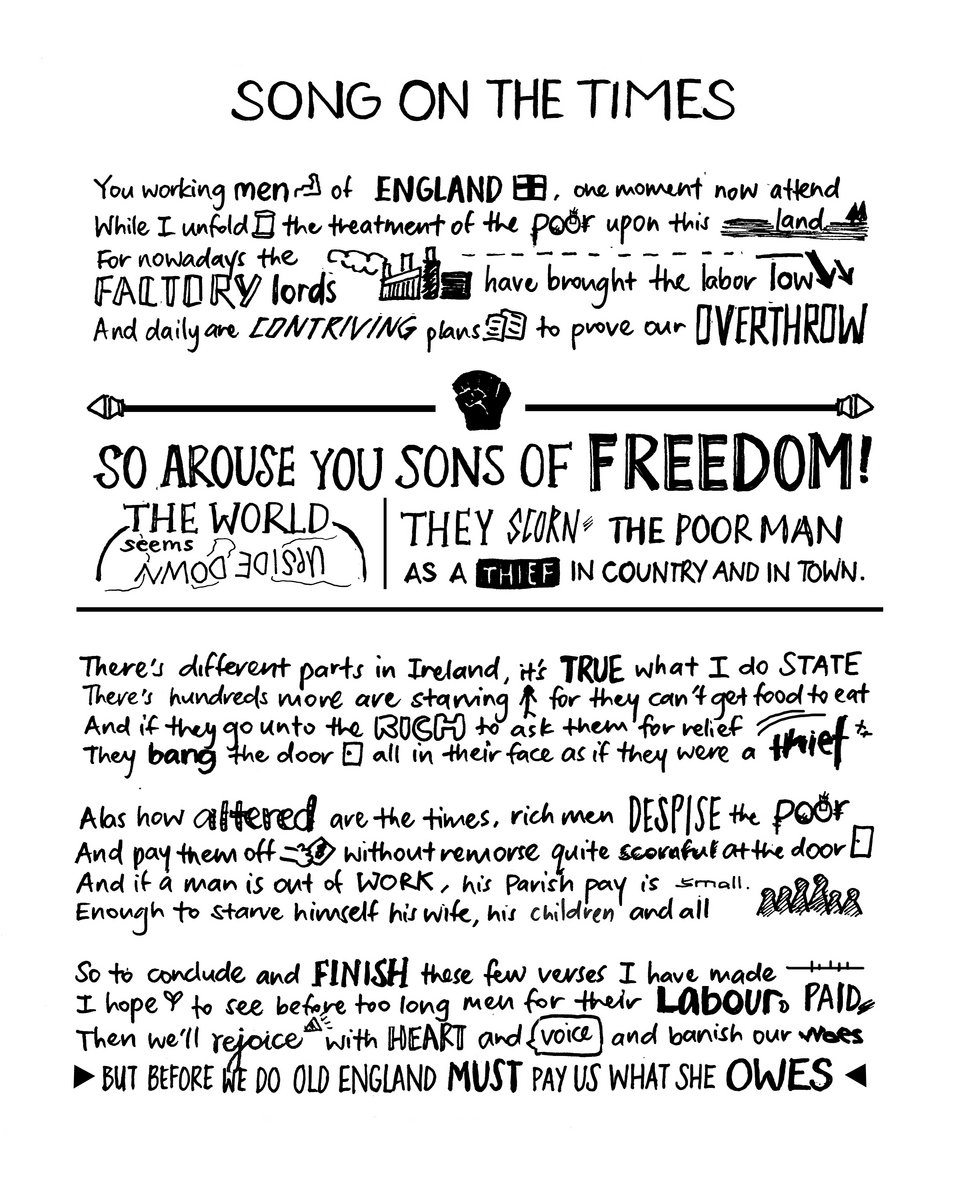 SONG ON THE TIMES
You working men of ENGLAND, one moment now attend
While I unfold the treatment of the poor upon this land
For nowadays the
FACTORY lords have brought the labor low
And daily are CONTRIVING plans to prove our OVERTHROW
SO AROUSE YOU SONS OF FREEDOM!
THE WORLD
seems
UPSIDE DOWN
THEY SCORN THE POOR MAN
AS A THIEF IN COUNTRY AND IN TOWN.
There's different parts in Ireland, it's TRUE what I do STATE
There's hundreds more are starving for they can't get food to eat
And if they go unto the RICH to ask them for relief
They bang the door all in their face as if they were a thief
Alas how altered are the times, rich men DESPISE the poor
And pay them off without remorse quite scornful at the door
And if a man is out of WORK, his Parish pay is small.
Enough to starve himself his wife, his children and all
So to conclude and FINISH these few verses I have made
I hope to see before too long men for their Labour, PAID
Then we'll rejoice with HEART and voice and banish our woes
BUT BEFORE WE DO OLD ENGLAND MUST PAY US WHAT SHE OWES